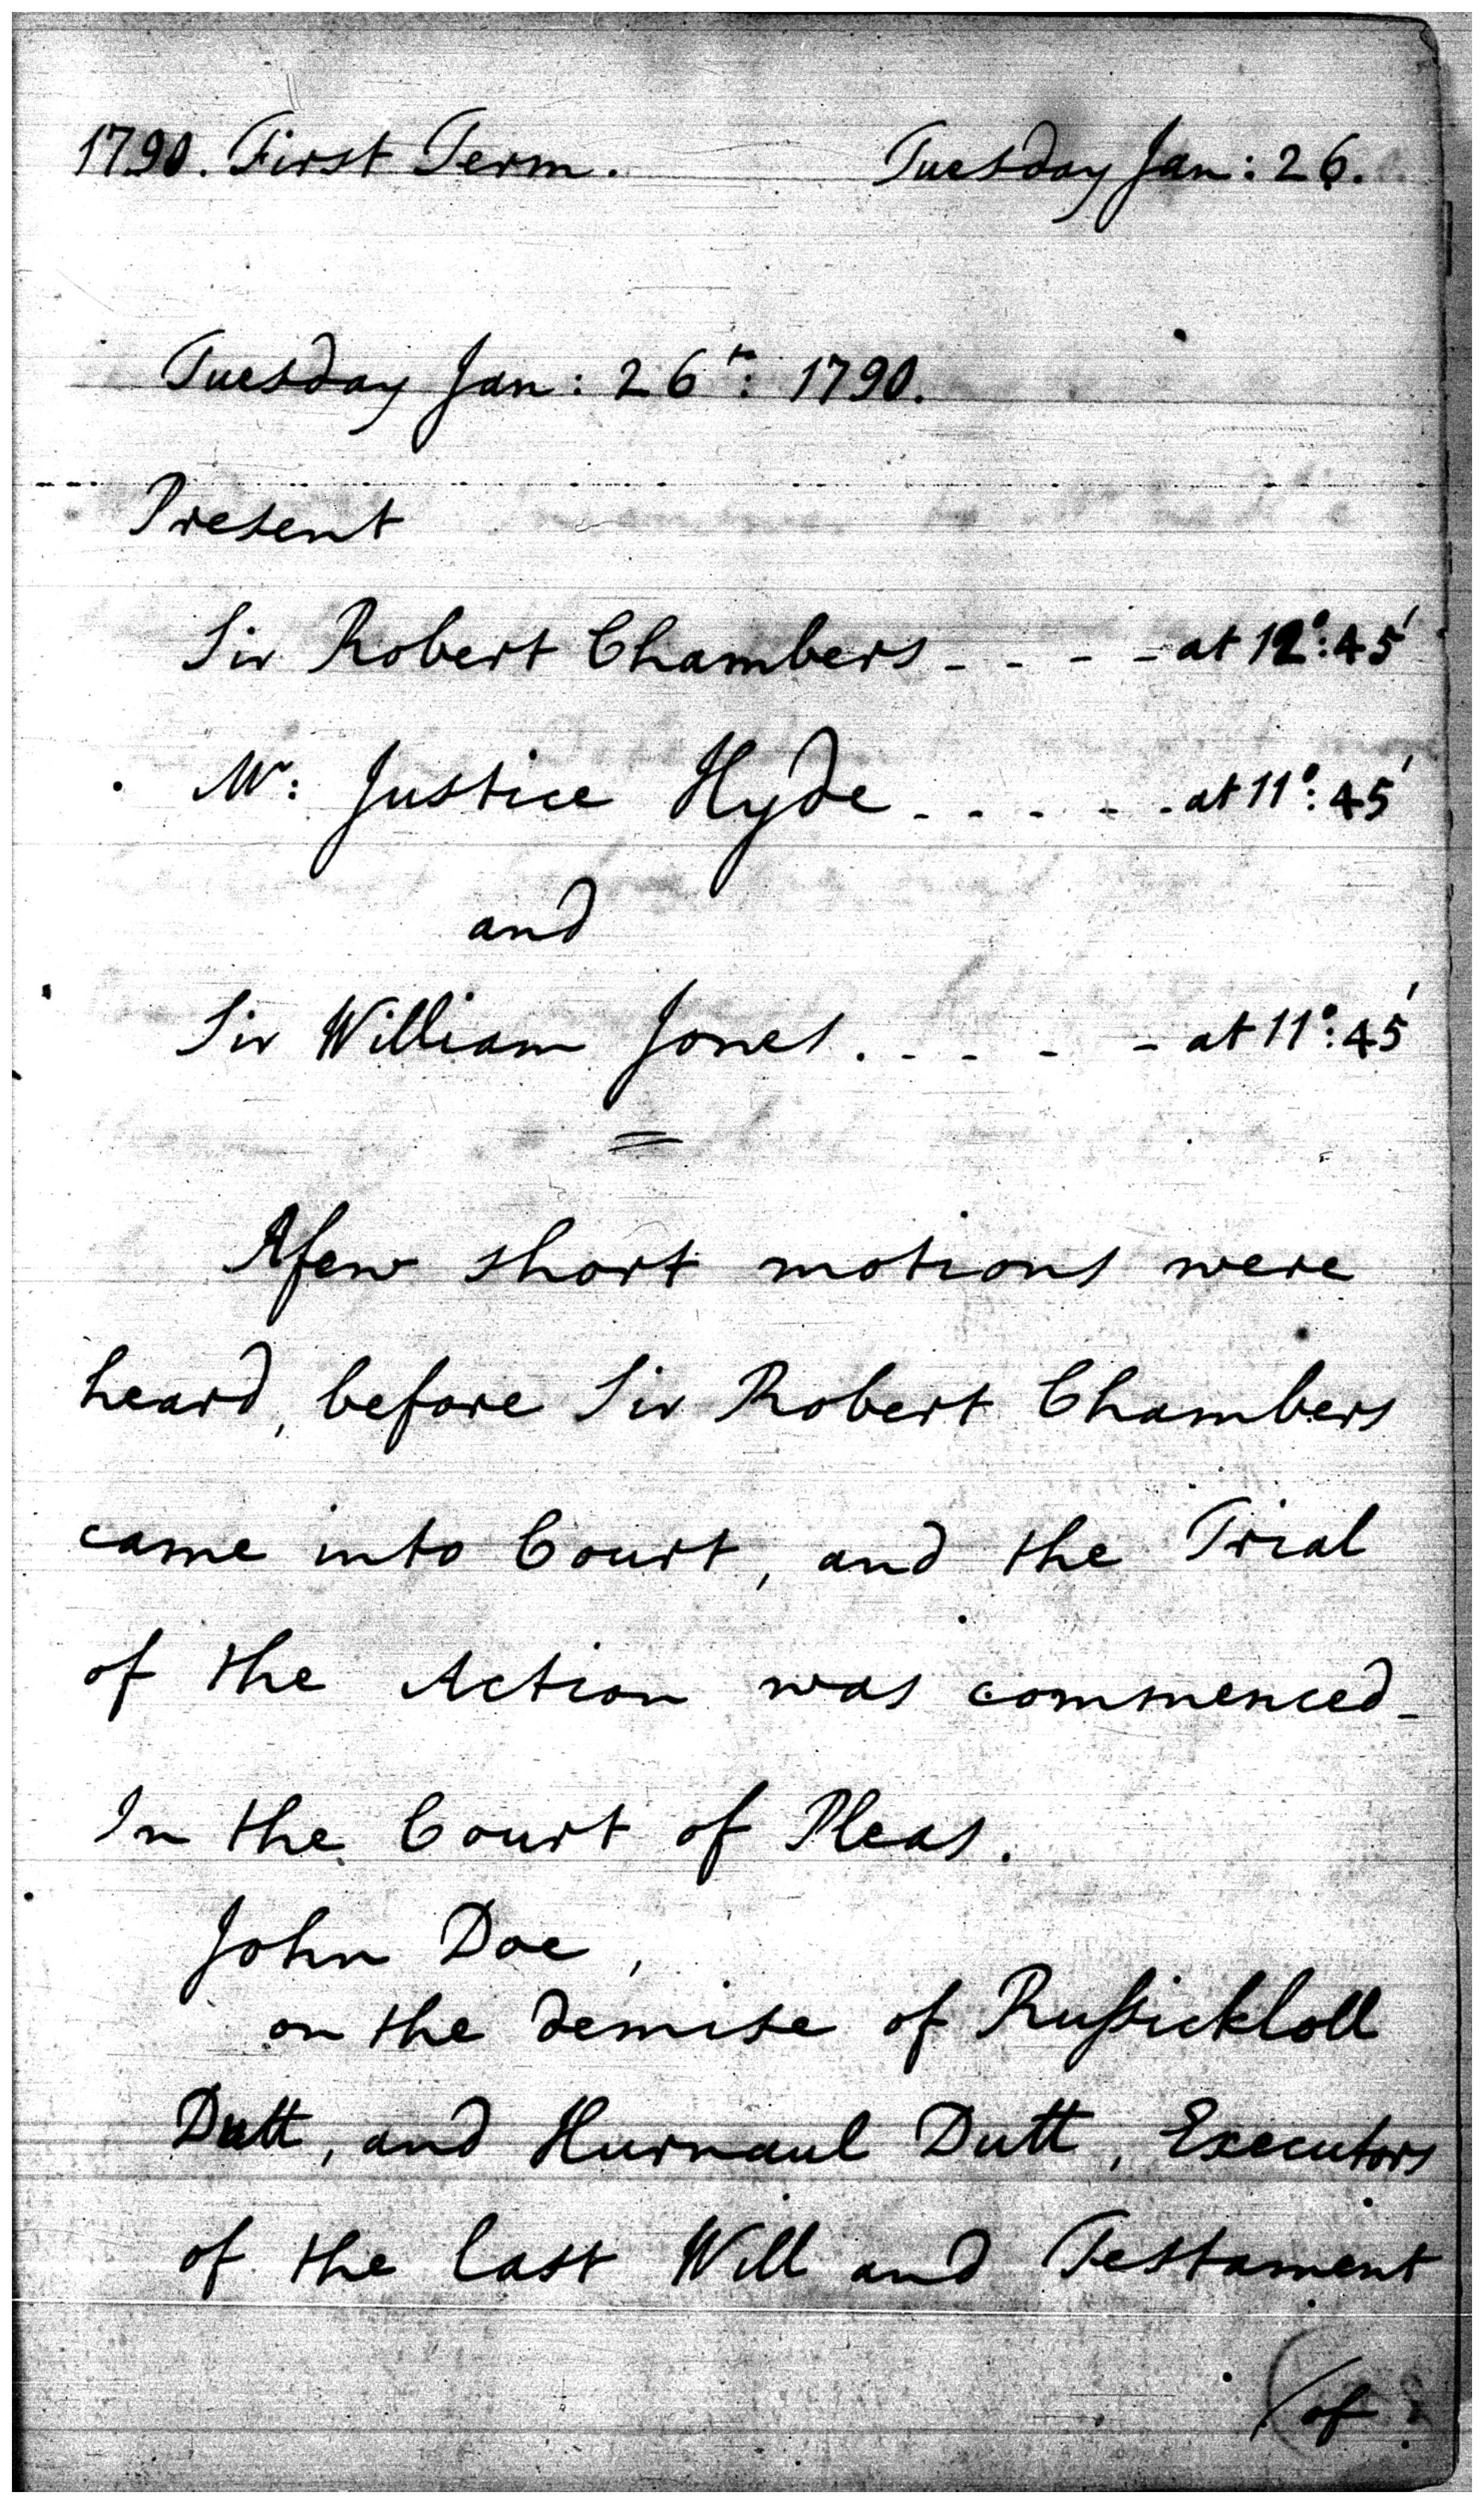 1790. First Term. Tuesday Jan: 26.
Tuesday Jan: 26th: 1790.
Present
Sir Robert Chambers - - - - at 12°: 45'
Mr: Justice Hyde - - - - - at 11°: 45'
and
Sir William Jones. - - - - at 11°: 45'
A few short motions were
heard, before Sir Robert Chambers
came into Court, and the Trial
of the Action was commenced -
In the Court of Pleas.
John Doe,
on the demise of Rußickloll
Dutt, and Hurnaul Dutt, Executors
of the last Will and Testament
/of